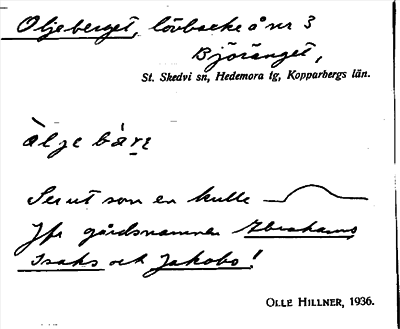 Oljeberget, lövbacke å nr 3
Björänget,
St. Skedvi sn, Hedemora tg, Kopparbergs län.
àlje bàrε
Ser ut som en kulle
Jfr gårdsnamnen Abrahams
Isaks och Jakobs!
OLLE HILLNER, 1936.